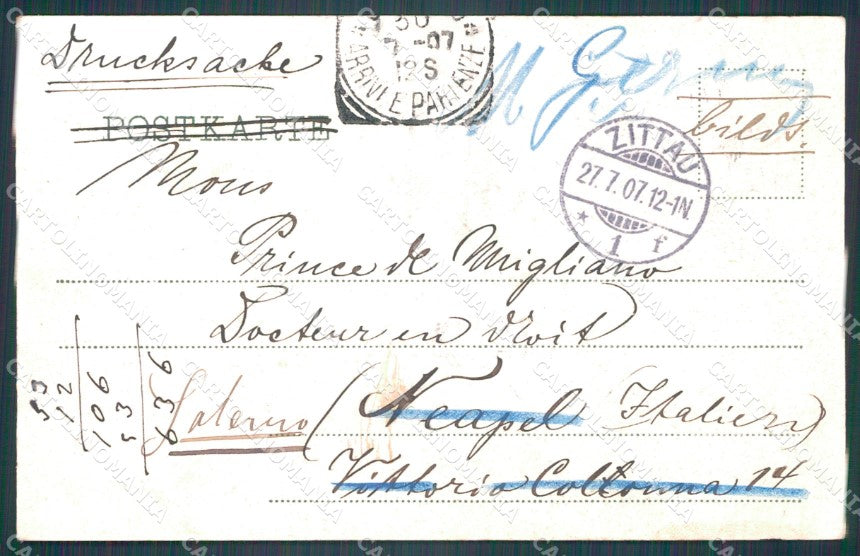 Drucksache
POSTKARTE
30
7-07
12 S
ARRIVI E PARTENZE
ZITTAU
27.7.07.12-1N.
* 1 f
bilds.
Mons
Prince de Migliano
Docteur en droit
Salerno (Neapel Italien)
Vittoria Collonna 14
53
12
106
53
636
CARTOLINOMANIA